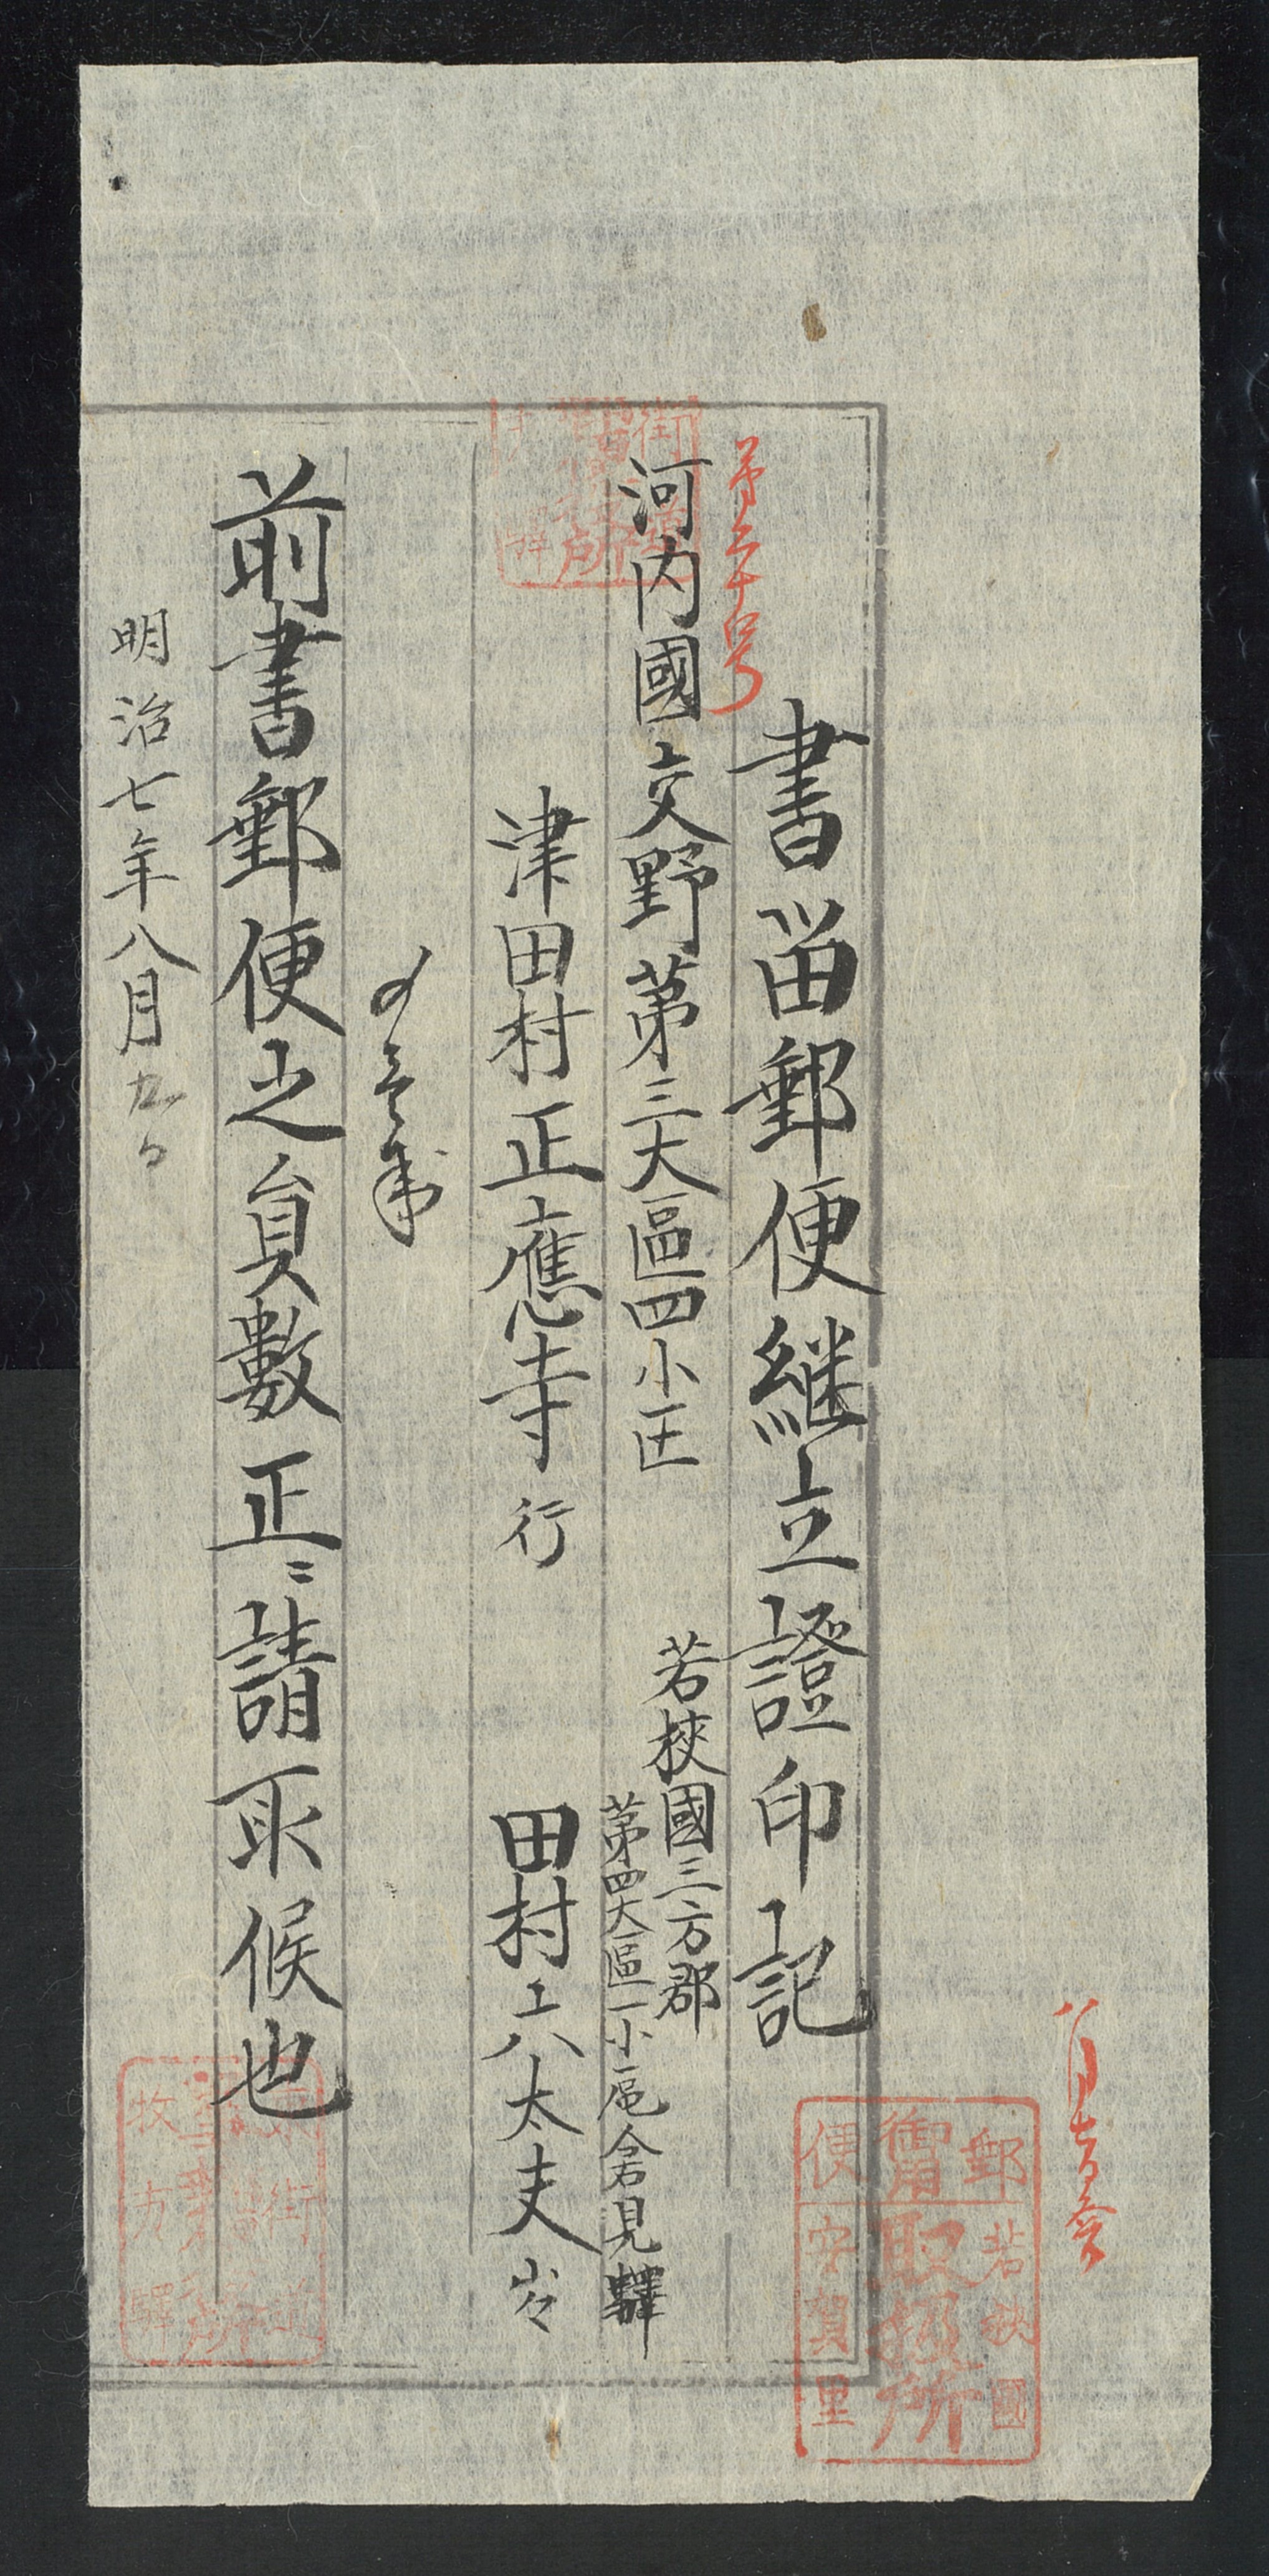 書畄郵便継立證印記
第六十号
河内國交野第三大區四小区
津田村正應寺行
若狹國三方郡
第四大區一小區倉見驛
田村工八太夫ゟ
〆壱通
前書郵便之員數正ニ請取候也
明治七年八月九日
郵便
御用取扱所
若狹國
安賀里